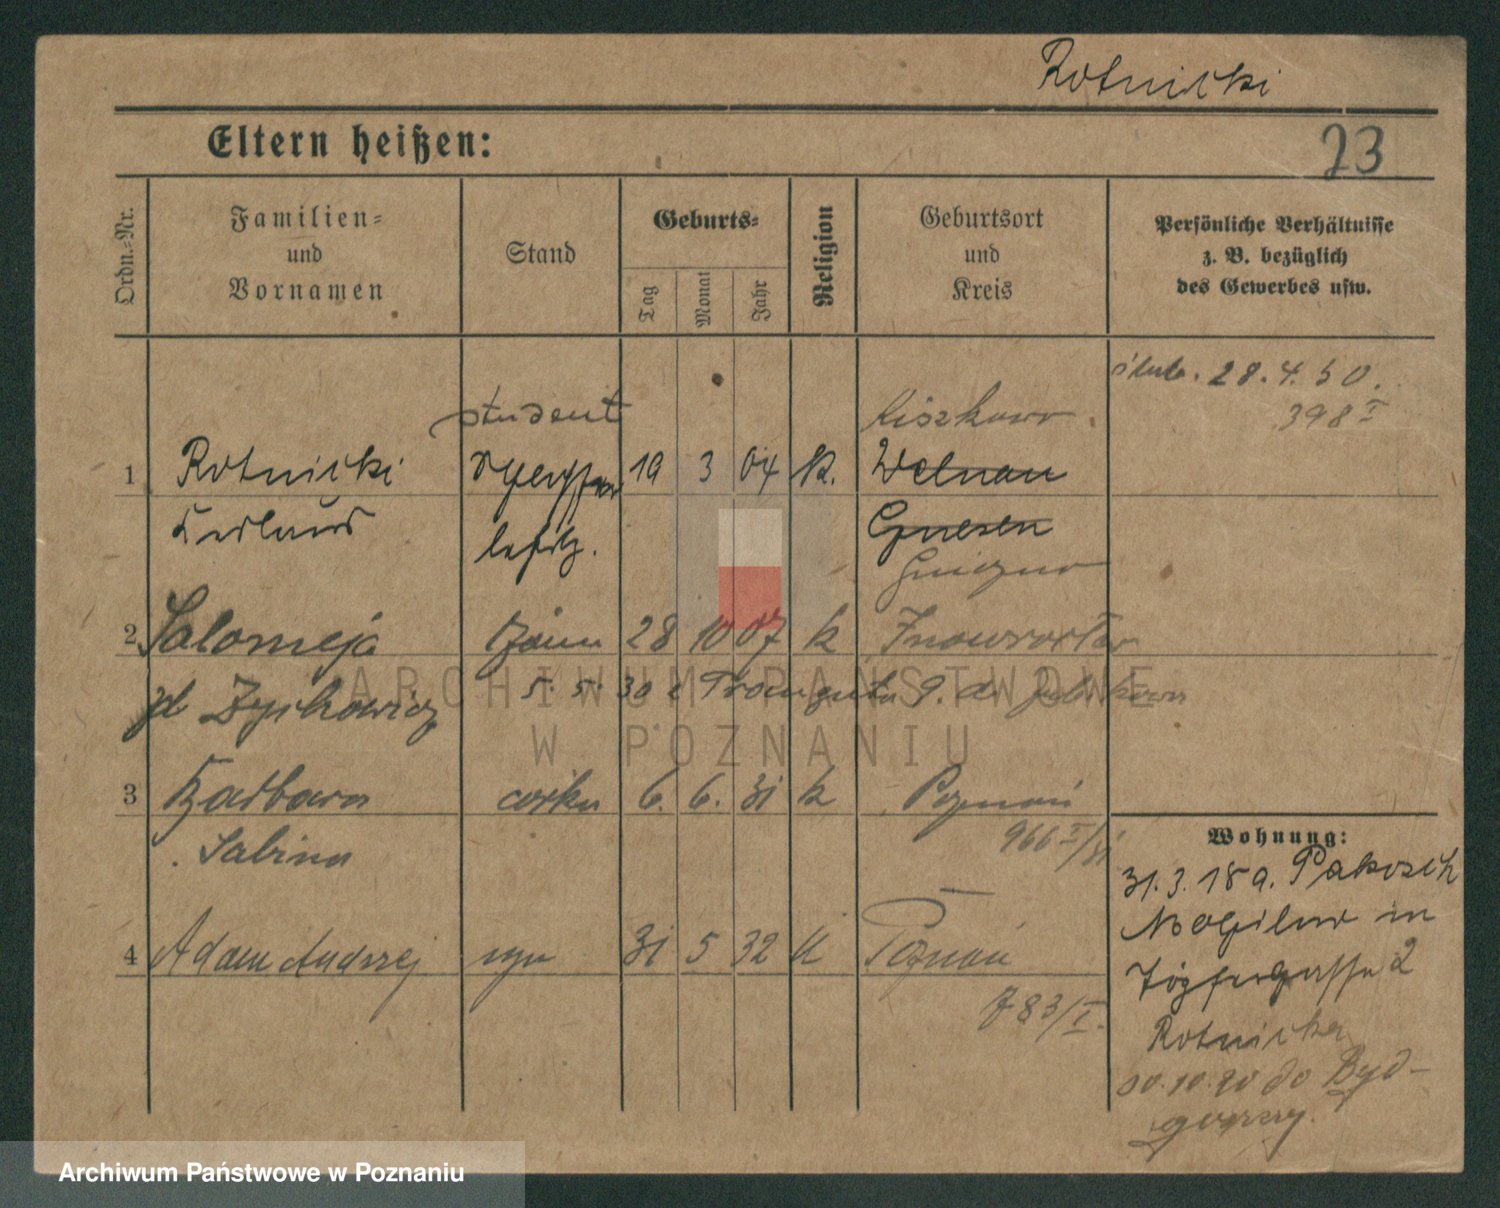 Rotnicki
Eltern heißen:
23
Ordn.-Nr.
Familien- und Vornamen
Stand
Geburts-
Tag
Monat
Jahr
Religion
Geburtsort und Kreis
Persönliche Verhältnisse z. B. bezüglich des Gewerbes usw.
28.4.30.
398 I
student
Kiszkowo
1 Rotnicki 19 3 04 k. Welnau
Gnesen
Gniezno
2 Salomeja żona 28 10 07 k Inowrocław
zd Zychowicz 5. 5. 30 z
3 Barbara córka 6. 6. 31 k Poznań
Sabina 966 I/31
4 Adam Andrzej syn 31 5 32 k Poznań
783/I.
Wohnung:
31.3.18 a. Pakosch
Mogilno in
2
Rotnicka
do Byd-
goszczy.
ARCHIWUM PAŃSTWOWE
W POZNANIU
Archiwum Państwowe w Poznaniu